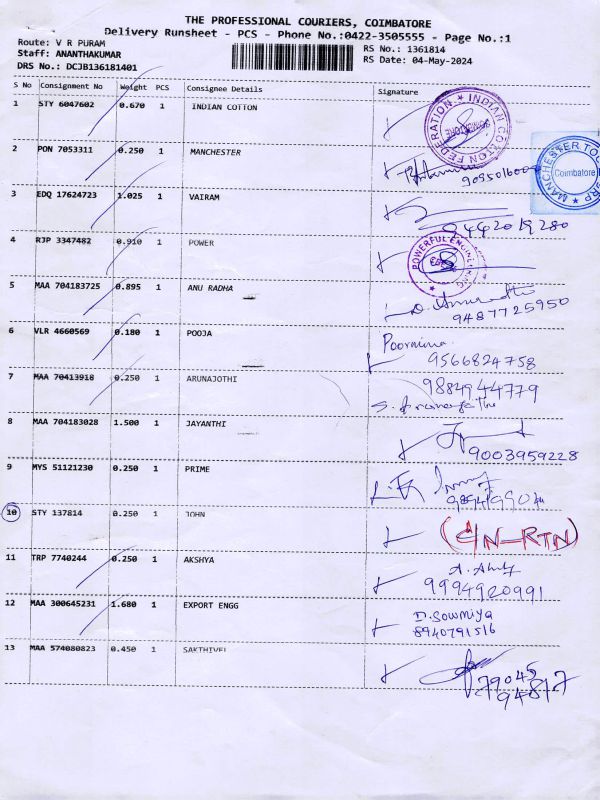 THE PROFESSIONAL COURIERS, COIMBATORE
Delivery Runsheet - PCS - Phone No.:0422-3505555 - Page No.:1
Route: V R PURAM
RS No.: 1361814
Staff: ANANTHAKUMAR
RS Date: 04-May-2024
DRS No.: DCJB136181401
S No Consignment No Weight PCS Consignee Details Signature
1 STY 6047602 0.670 1 INDIAN COTTON
INDIAN COTTON FEDERATION
2 PON 7053311 0.250 1 MANCHESTER
MANCHESTER Coimbatore
3 EDQ 17624723 1.025 1 VAIRAM
9442019280
4 RJP 3347482 0.910 1 POWER
POWERFUL
5 MAA 704183725 0.895 1 ANU RADHA
D. Anuradha
9487725950
6 VLR 4660569 0.180 1 POOJA
Poornima
9566824758
7 MAA 70413918 0.250 1 ARUNAJOTHI
9884944779
8 MAA 704183028 1.500 1 JAYANTHI
9003959228
9 MYS 51121230 0.250 1 PRIME
10 STY 137814 0.250 1 JOHN
(C/N-RTN)
11 TRP 7740244 0.250 1 AKSHYA
9994920991
12 MAA 300645231 1.680 1 EXPORT ENGG
D. Sowmiya
8940791516
13 MAA 574080823 0.450 1 SAKTHIVEL
79045
94817